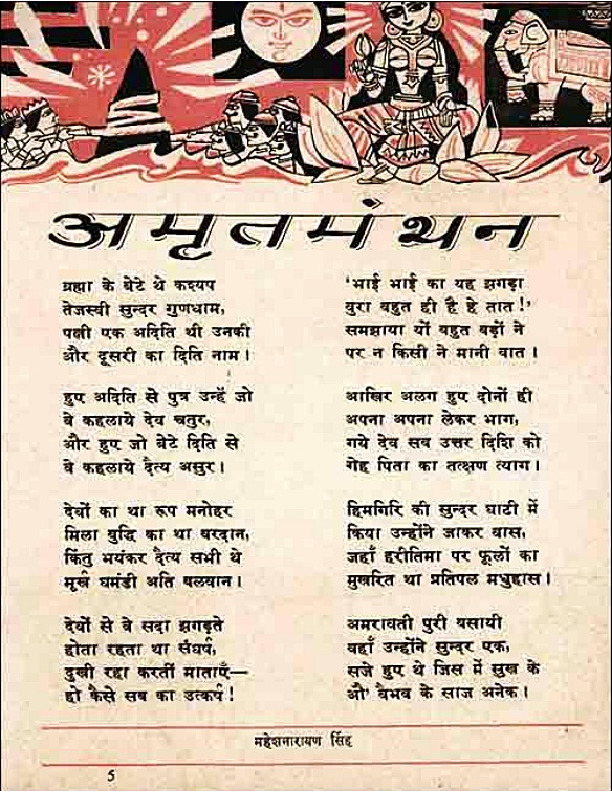 अमृतमंथन
ब्रह्मा के बेटे थे कश्यप
तेजस्वी सुन्दर गुणधाम,
पत्नी एक अदिति थी उनकी
और दूसरी का दिति नाम।
हुए अदिति से पुत्र उन्हें जो
वे कहलाये देव चतुर,
और हुए जो बेटे दिति से
वे कहलाये दैत्य असुर।
देवों का था रूप मनोहर
मिला बुद्धि का था वरदान,
किंतु भयंकर दैत्य सभी थे
मूर्ख घमंडी अति बलवान।
देवों से वे सदा झगड़ते
होता रहता था संघर्ष,
दुखी रहा करतीं माताएँ—
हो कैसे सब का उत्कर्ष!
'भाई भाई का यह झगड़ा
बुरा बहुत ही है हे तात!'
समझाया यों बहुत बड़ों ने
पर न किसी ने मानी बात।
आखिर अलग हुए दोनों ही
अपना अपना लेकर भाग,
गये देव सब उत्तर दिशि को
गेह पिता का तत्क्षण त्याग।
हिमगिरि की सुन्दर घाटी में
किया उन्होंने जाकर वास,
जहाँ हरीतिमा पर फूलों का
मुखरित था प्रतिपल मधुहास।
अमरावती पुरी बसायी
वहाँ उन्होंने सुन्दर एक,
सजे हुए थे जिस में सुख के
औ' वैभव के साज अनेक।
महेशनारायण सिंह
5